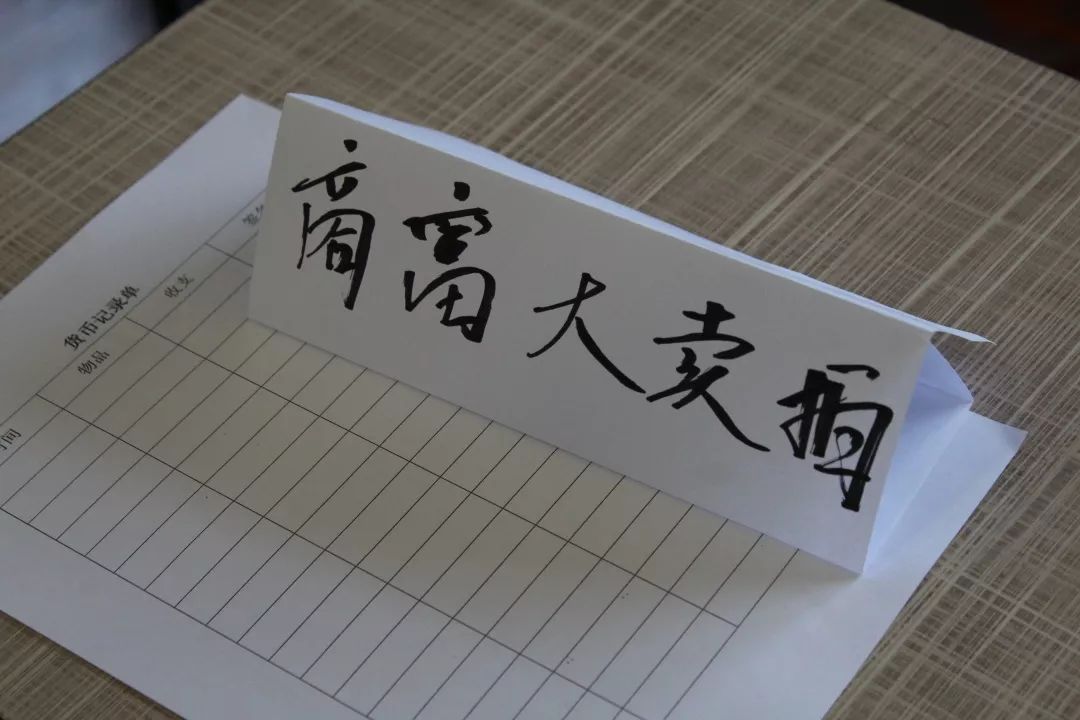 商富大卖
货币记录单
间
物品
收支
签